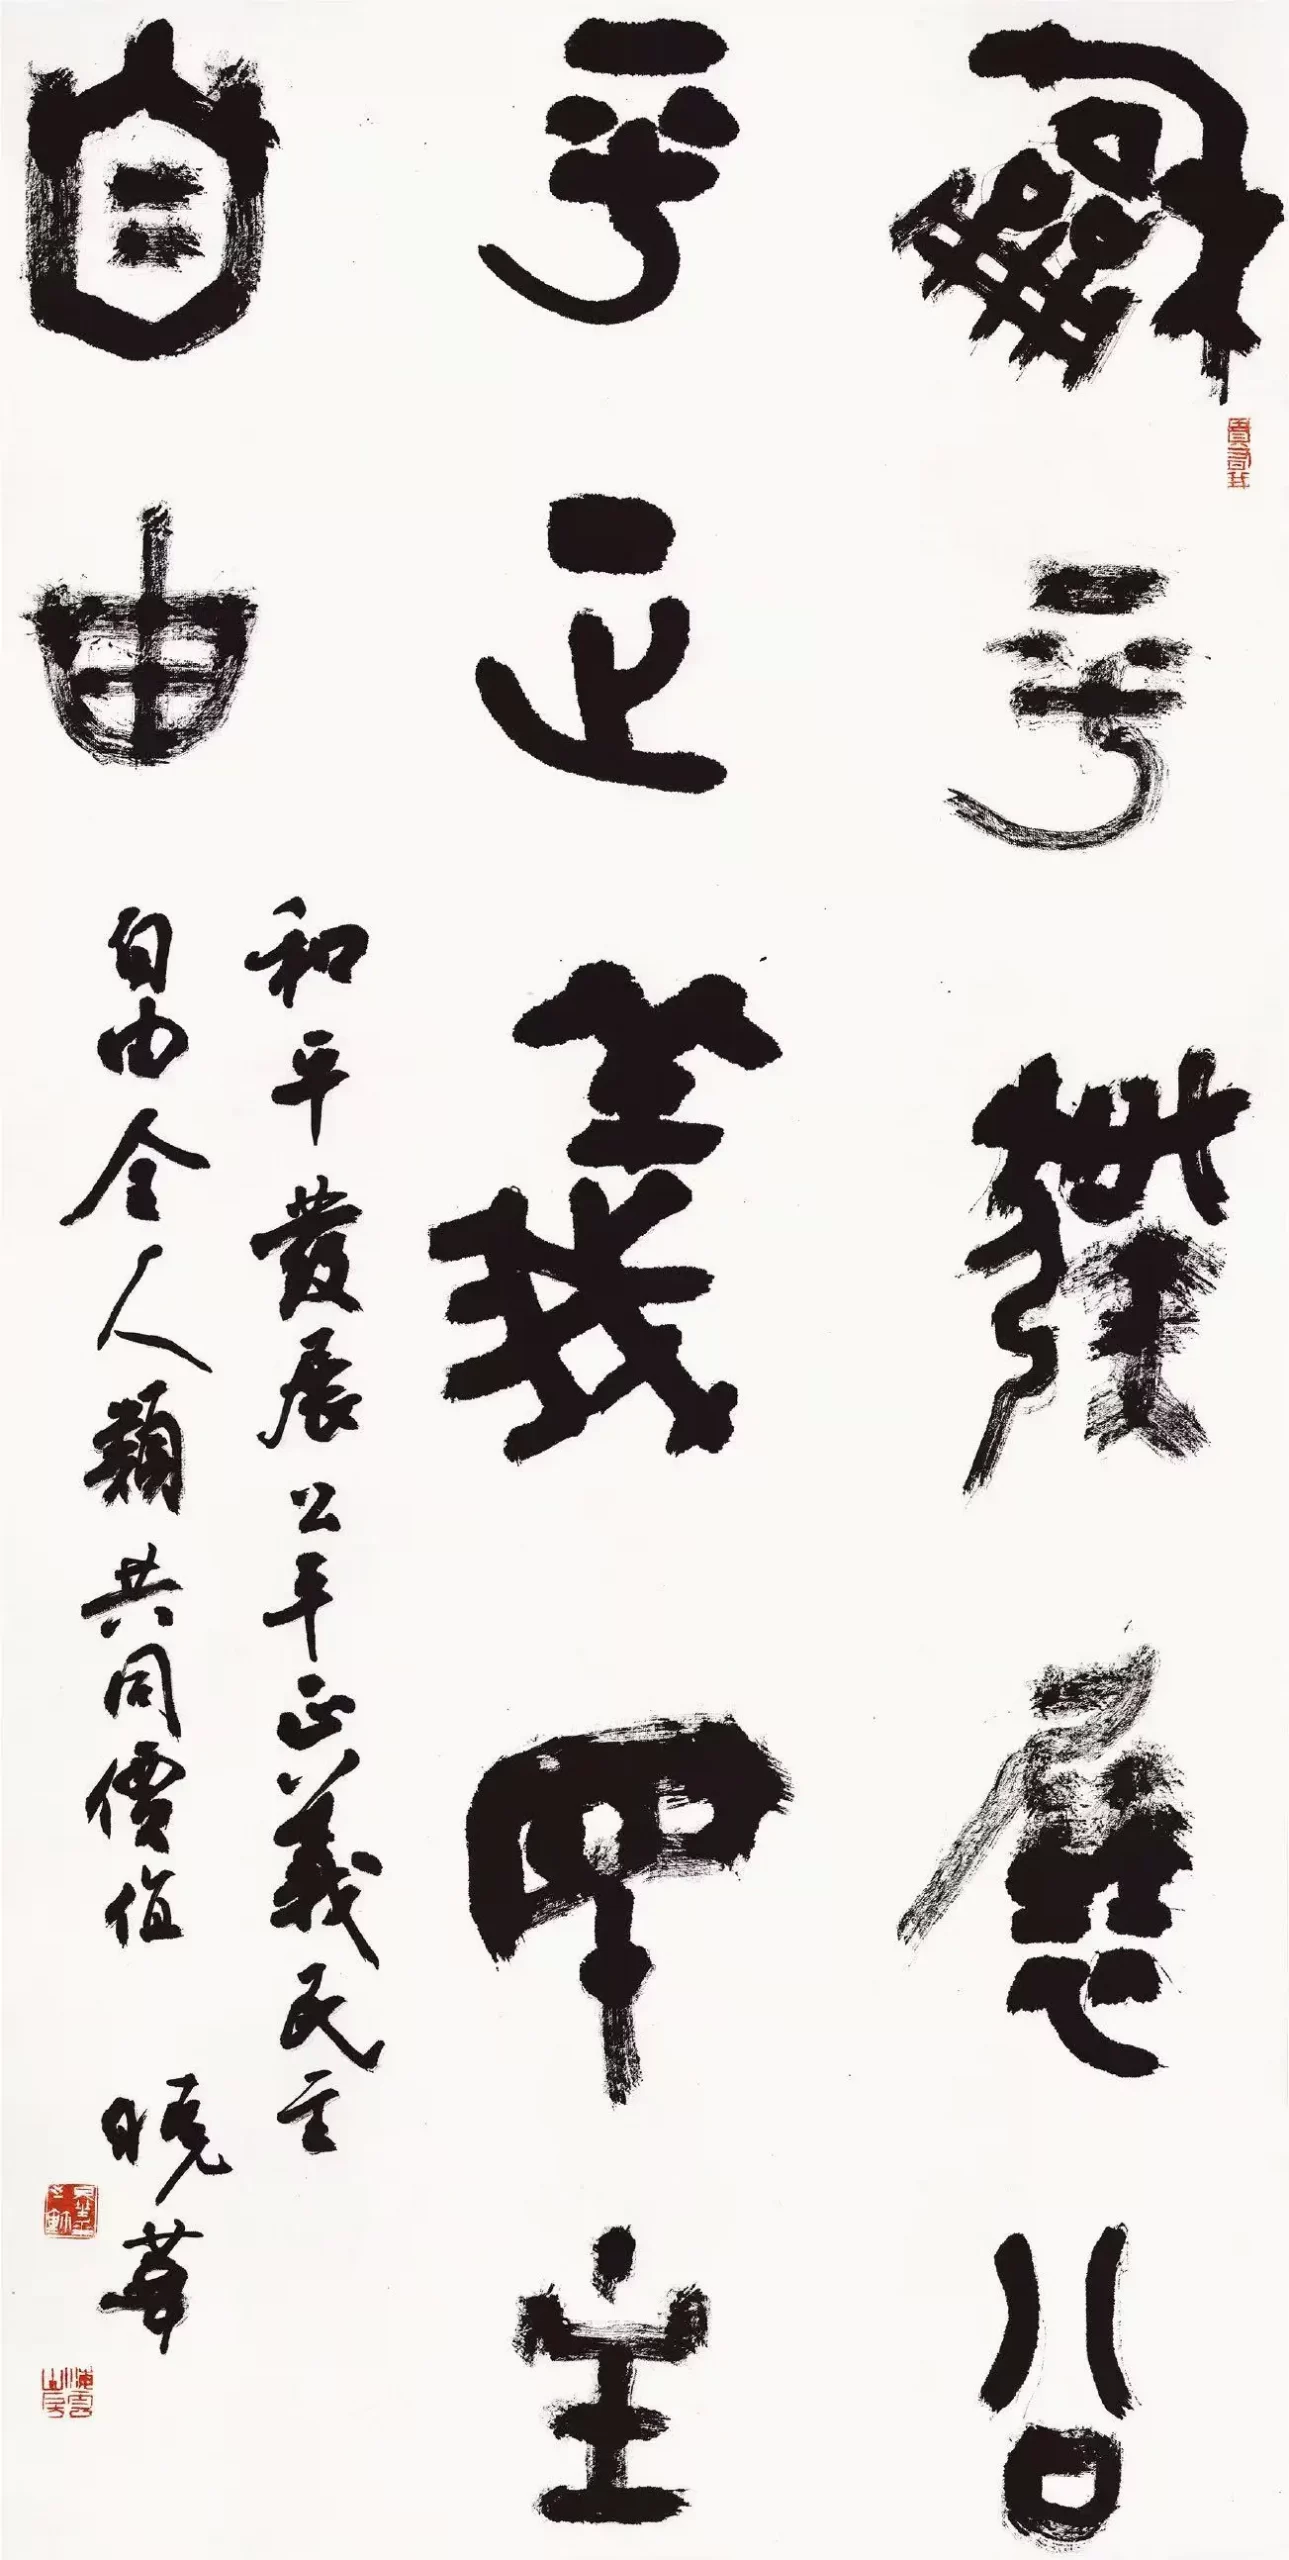 龢平發展公
平正義民主
自由
和平發展公平正義民主
自由全人類共同價值 曉